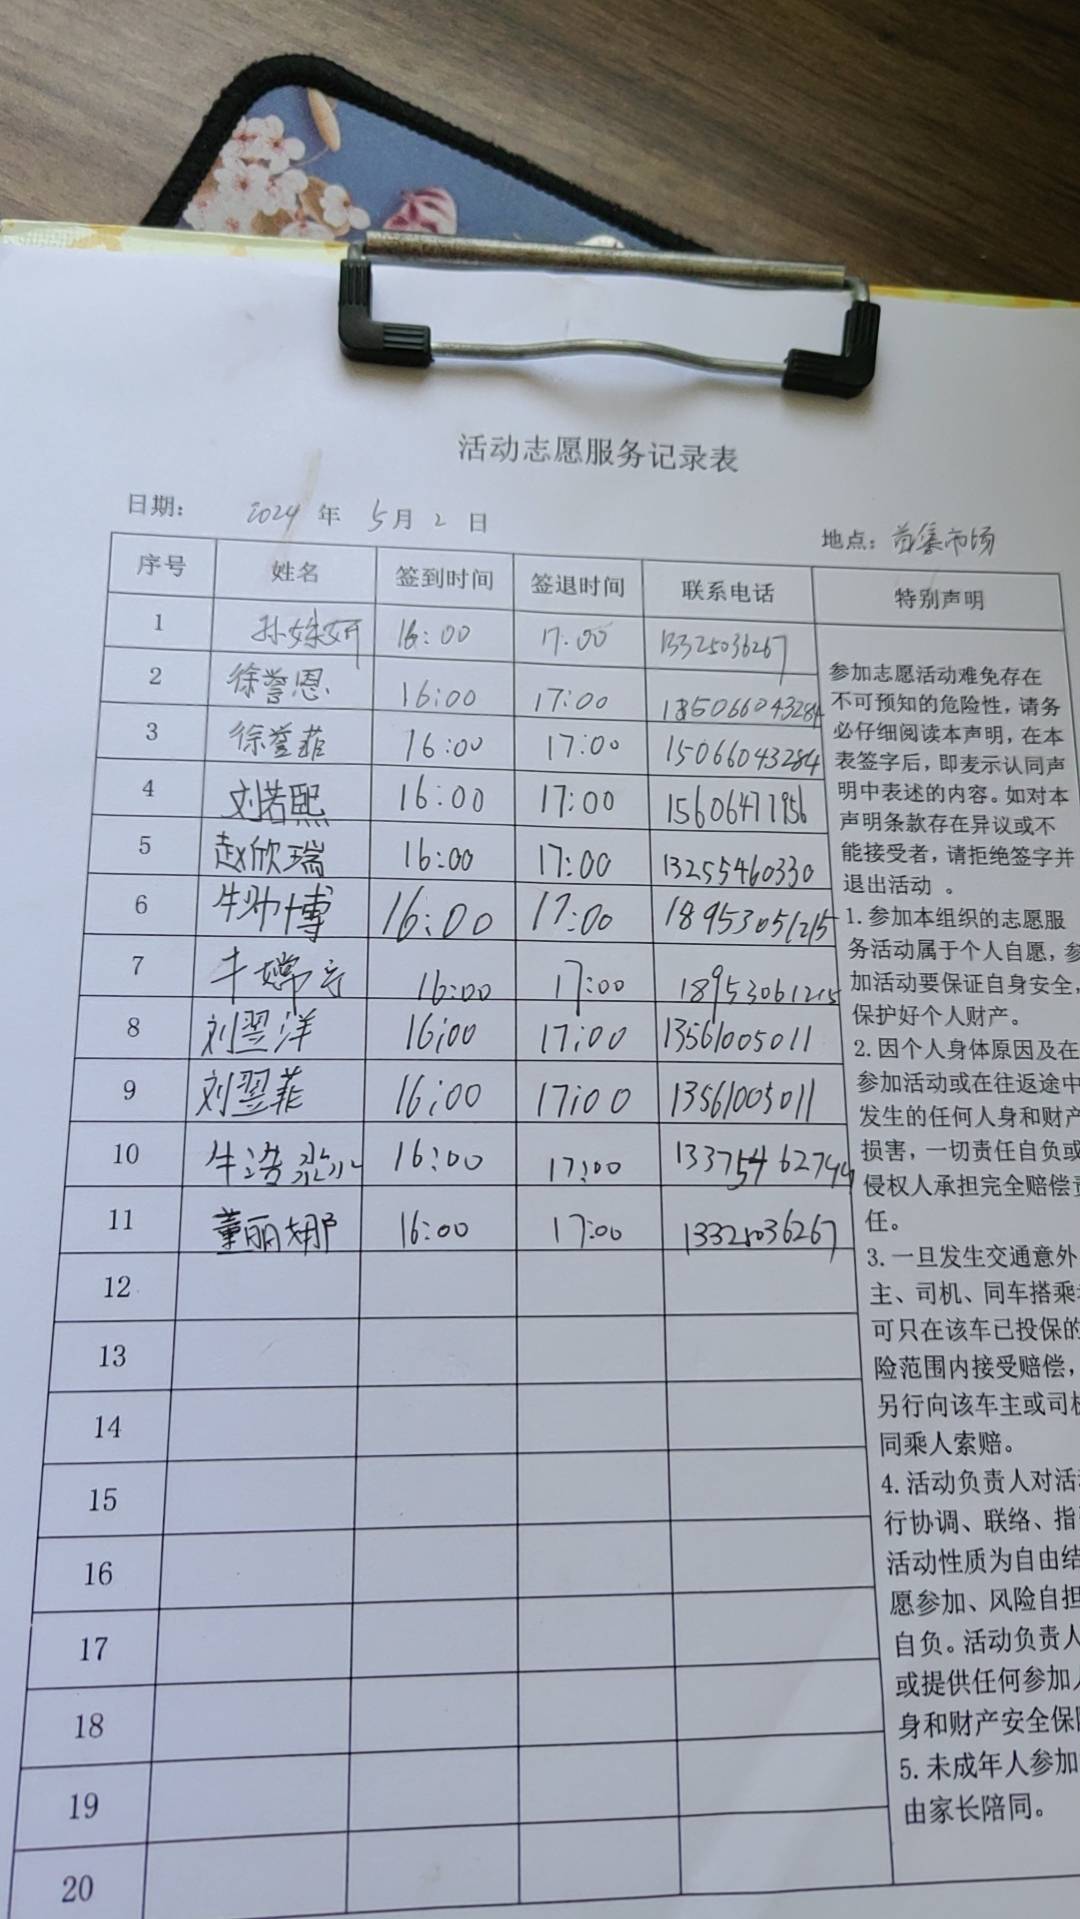 活动志愿服务记录表
日期： 2024 年 5 月 2 日
地点：苗集市场
序号 姓名 签到时间 签退时间 联系电话 特别声明
1 16:00 17:00 13325036267
2 徐誉恩 16:00 17:00 185066043284
3 徐誉菲 16:00 17:00 15066043284
4 刘若熙 16:00 17:00 15606477956
5 赵欣瑞 16:00 17:00 13255460330
6 牛帅博 16:00 17:00 18953051215
7 牛嫦 16:00 17:00 18953061215
8 刘翌洋 16:00 17:00 13561005011
9 刘翌菲 16:00 17:00 13561005011
10 牛浩淼 16:00 17:00 13375462744
11 董丽娜 16:00 17:00 13325036267
12
13
14
15
16
17
18
19
20
参加志愿活动难免存在
不可预知的危险性，请务
必仔细阅读本声明，在本
表签字后，即麦示认同声
明中表述的内容。如对本
声明条款存在异议或不
能接受者，请拒绝签字并
退出活动 。
1. 参加本组织的志愿服
务活动属于个人自愿，参
加活动要保证自身安全，
保护好个人财产。
2. 因个人身体原因及在
参加活动或在往返途中
发生的任何人身和财产
损害，一切责任自负或
侵权人承担完全赔偿责
任。
3. 一旦发生交通意外
主、司机、同车搭乘
可只在该车已投保的
险范围内接受赔偿，
另行向该车主或司机
同乘人索赔。
4. 活动负责人对活
行协调、联络、指
活动性质为自由结
愿参加、风险自担
自负。活动负责人
或提供任何参加人
身和财产安全保
5. 未成年人参加
由家长陪同。